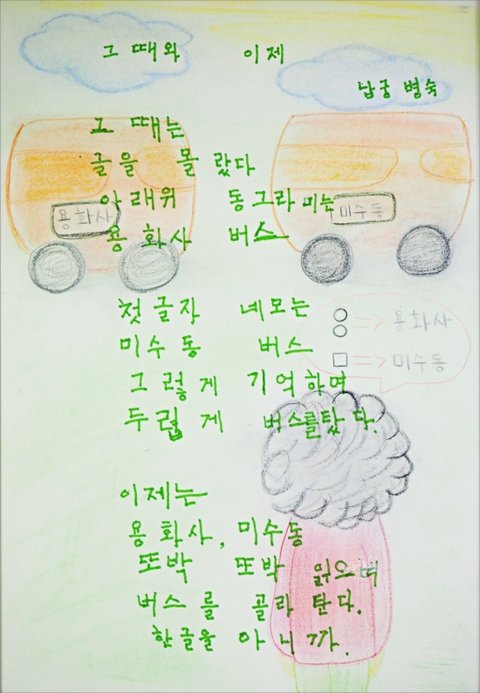 그 때와 이제
남궁 병숙
그 때는
글을 몰랐다
아래위 동그라미는
용화사 버스
용화사
미수동
첫글자 네모는
미수동 버스
그렇게 기억하며
두렵게 버스를탔다.
○○ => 용화사
□ => 미수동
이제는
용화사, 미수동
또박 또박 읽으며
버스를 골라 탄다.
한글을 아니까.